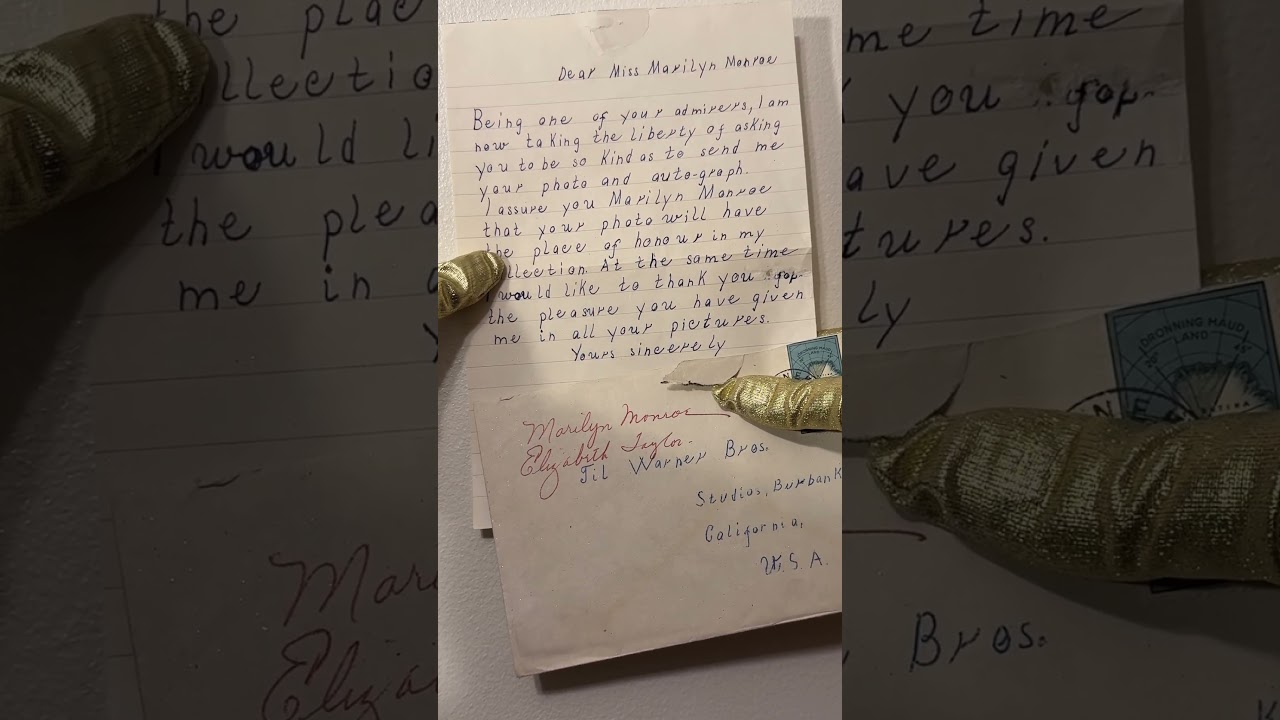 Dear Miss Marilyn Monroe
Being one of your admirers, I am
now taking the liberty of asking
you to be so kind as to send me
your photo and auto-graph.
I assure you Marilyn Monroe
that your photo will have
the place of honour in my
llection. At the same time
I would like to thank you for
the pleasure you have given
me in all your pictures.
Yours sincerely
DRONNING MAUD
LAND
Marilyn Monroe
Elizabeth Taylor
Til Warner Bros.
Studios, Burbank
California,
U.S.A.